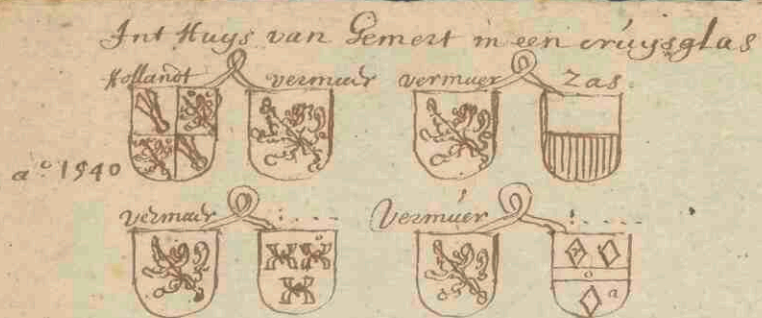 Int Huys van Gemert in een cruysglas
Hollandt vermuer vermuer Zas.
ao. 1540
vermuer : . . . . Vermuer : . . . .